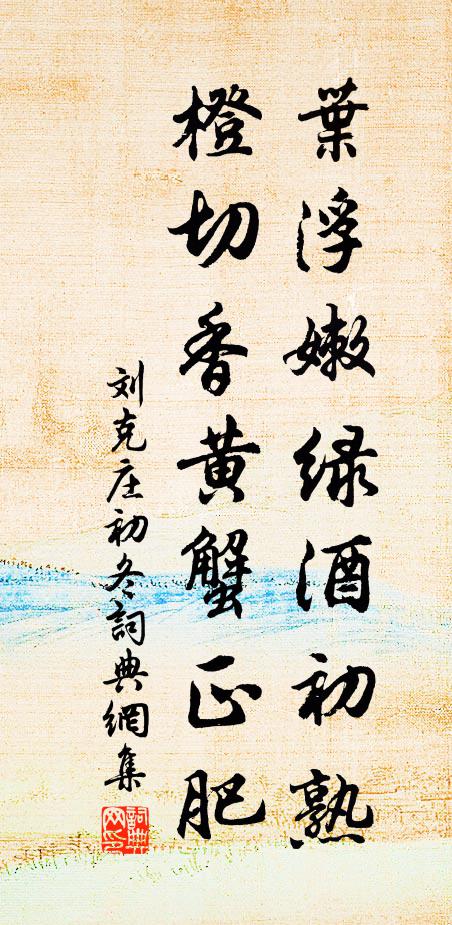 葉浮嫩緑酒初熟
橙切香黄蟹正肥
刘克庄初冬詞典網集
詞典网印